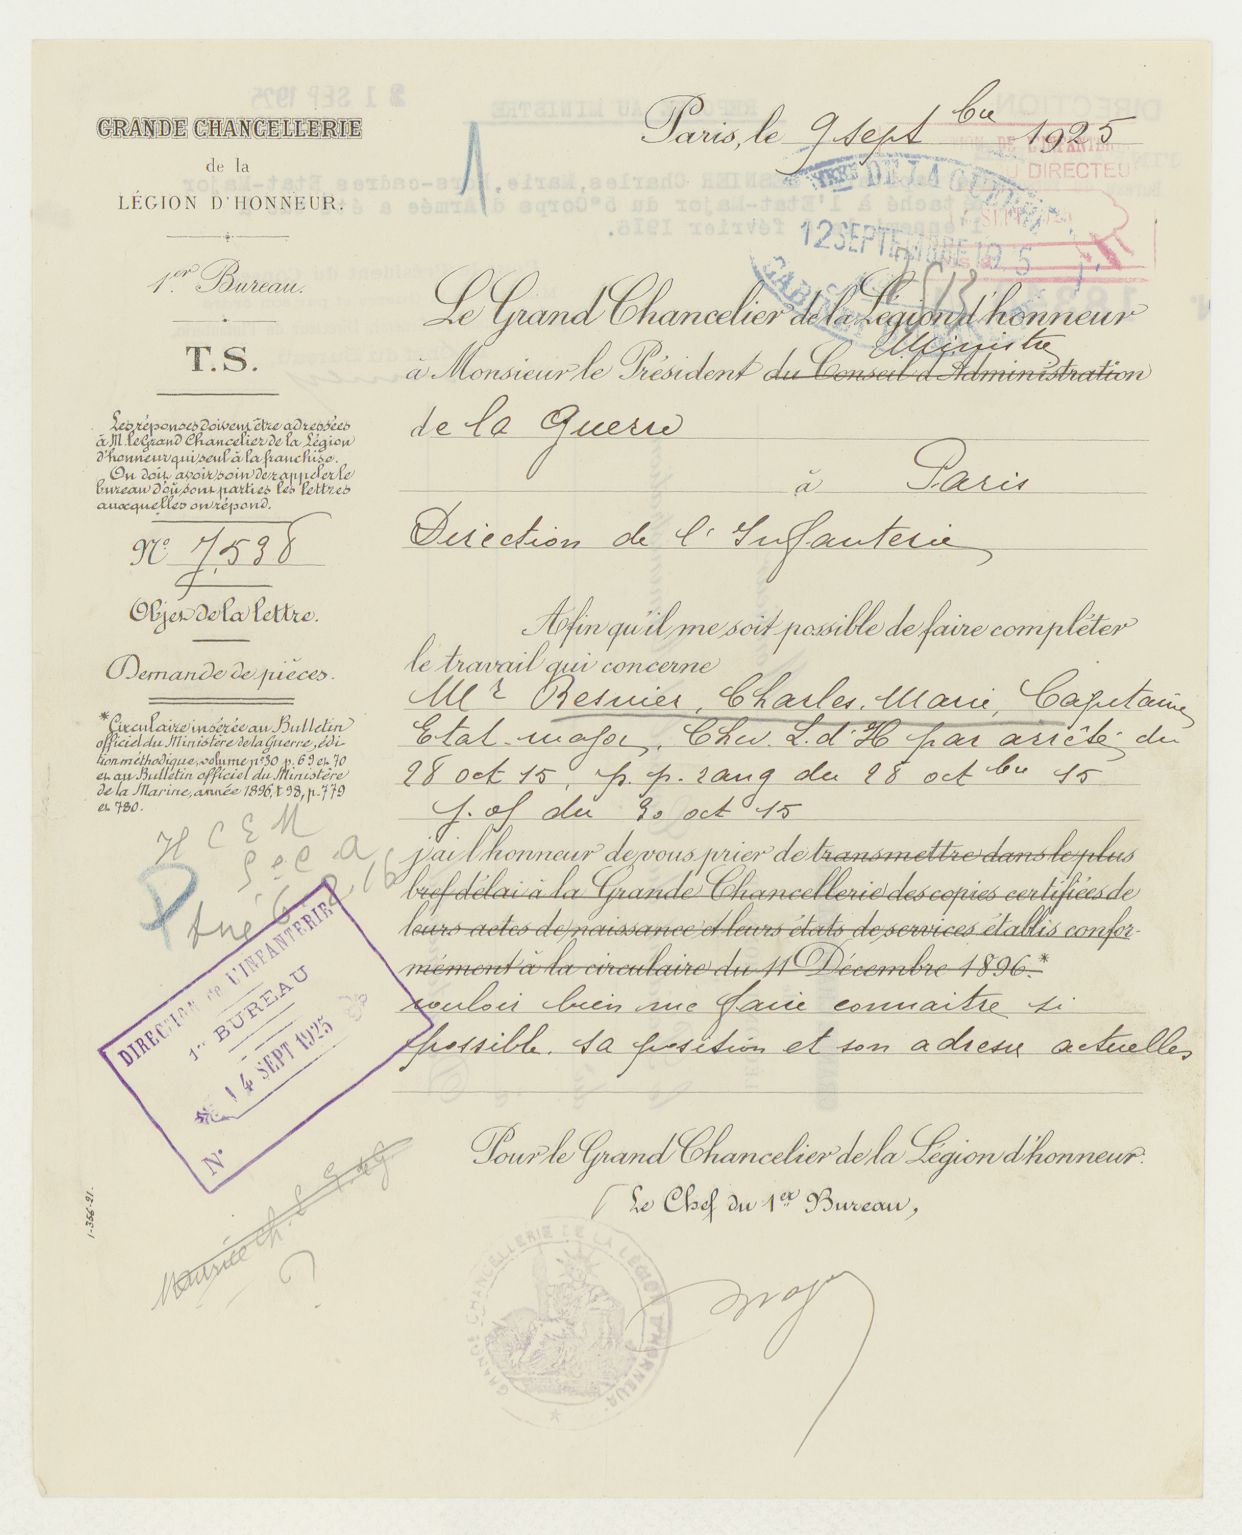 GRANDE CHANCELLERIE
de la
LÉGION D'HONNEUR.
1er Bureau.
T.S.
Les réponses doivent être adressées
à M. le Grand Chancelier de la Légion
d'honneur qui seul à la franchise.
On doit avoir soin de rappeler le
bureau d'où sont parties les lettres
auxquelles on répond.
No 7.538
Objet de la lettre.
Demande de pièces.
* Circulaire insérée au Bulletin
officiel du Ministère de la Guerre, édi-
tion méthodique, volume no 30 p. 69 et 70
et au Bulletin officiel du Ministère
de la Marine, année 1896, t 98, p. 779
et 780.
H C E M
5e C. a
tué 6 2 16
DIRECTION de L'INFANTERIE
1er BUREAU
14 SEPT 1925
No
1-356-21.
Paris, le 9 sept bre 1925
DE LA GUERRE
12 SEPTEMBRE 1925
CABINET
DE L'INFANTERIE
DU DIRECTEU
Le Grand Chancelier de la Légion d'honneur
Ministre
à Monsieur le Président du Conseil d'Administration
de la Guerre
à Paris
Direction de l'Infanterie
Afin qu'il me soit possible de faire compléter
le travail qui concerne
Mr Resnier, Charles, Marie, Capitaine
Etat-major, Chev. L. d'H par arrêté du
28 oct 15, p. p. rang du 28 oct bre 15
J. of du 30 oct 15
j'ai l'honneur de vous prier de transmettre dans le plus
bref délai à la Grande Chancellerie des copies certifiées de
leurs actes de naissance et leurs états de services établis confor-
mément à la circulaire du 11 Décembre 1896.*
vouloir bien me faire connaitre si
possible. sa position et son adresse actuelles
Pour le Grand Chancelier de la Légion d'honneur.
Le Chef du 1er Bureau,
GRANDE CHANCELLERIE DE LA LÉGION D'HONNEUR